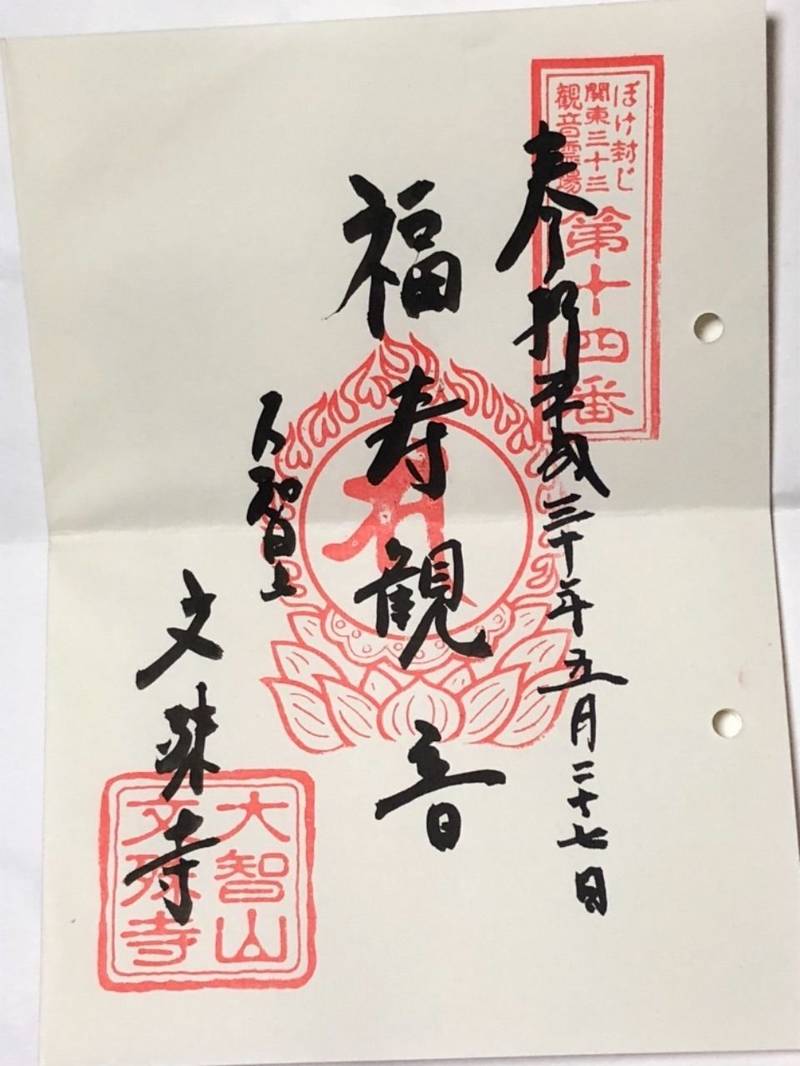 ぼけ封じ
関東三十三
観音霊場
第十四番
奉拝 平成三十年五月二十七日
福寿観音
大智山
文殊寺
大智山
文殊寺